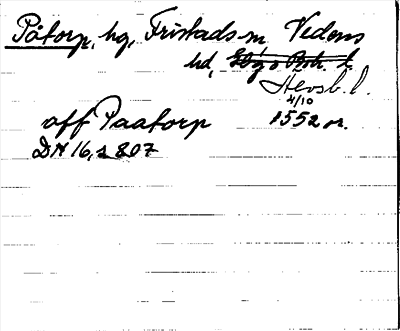 Påtorp, hg, Fristads sn Vedens
hd, Älvsb. l.
4/10
aff Paatorp 1552 or.
DN 16, s 807